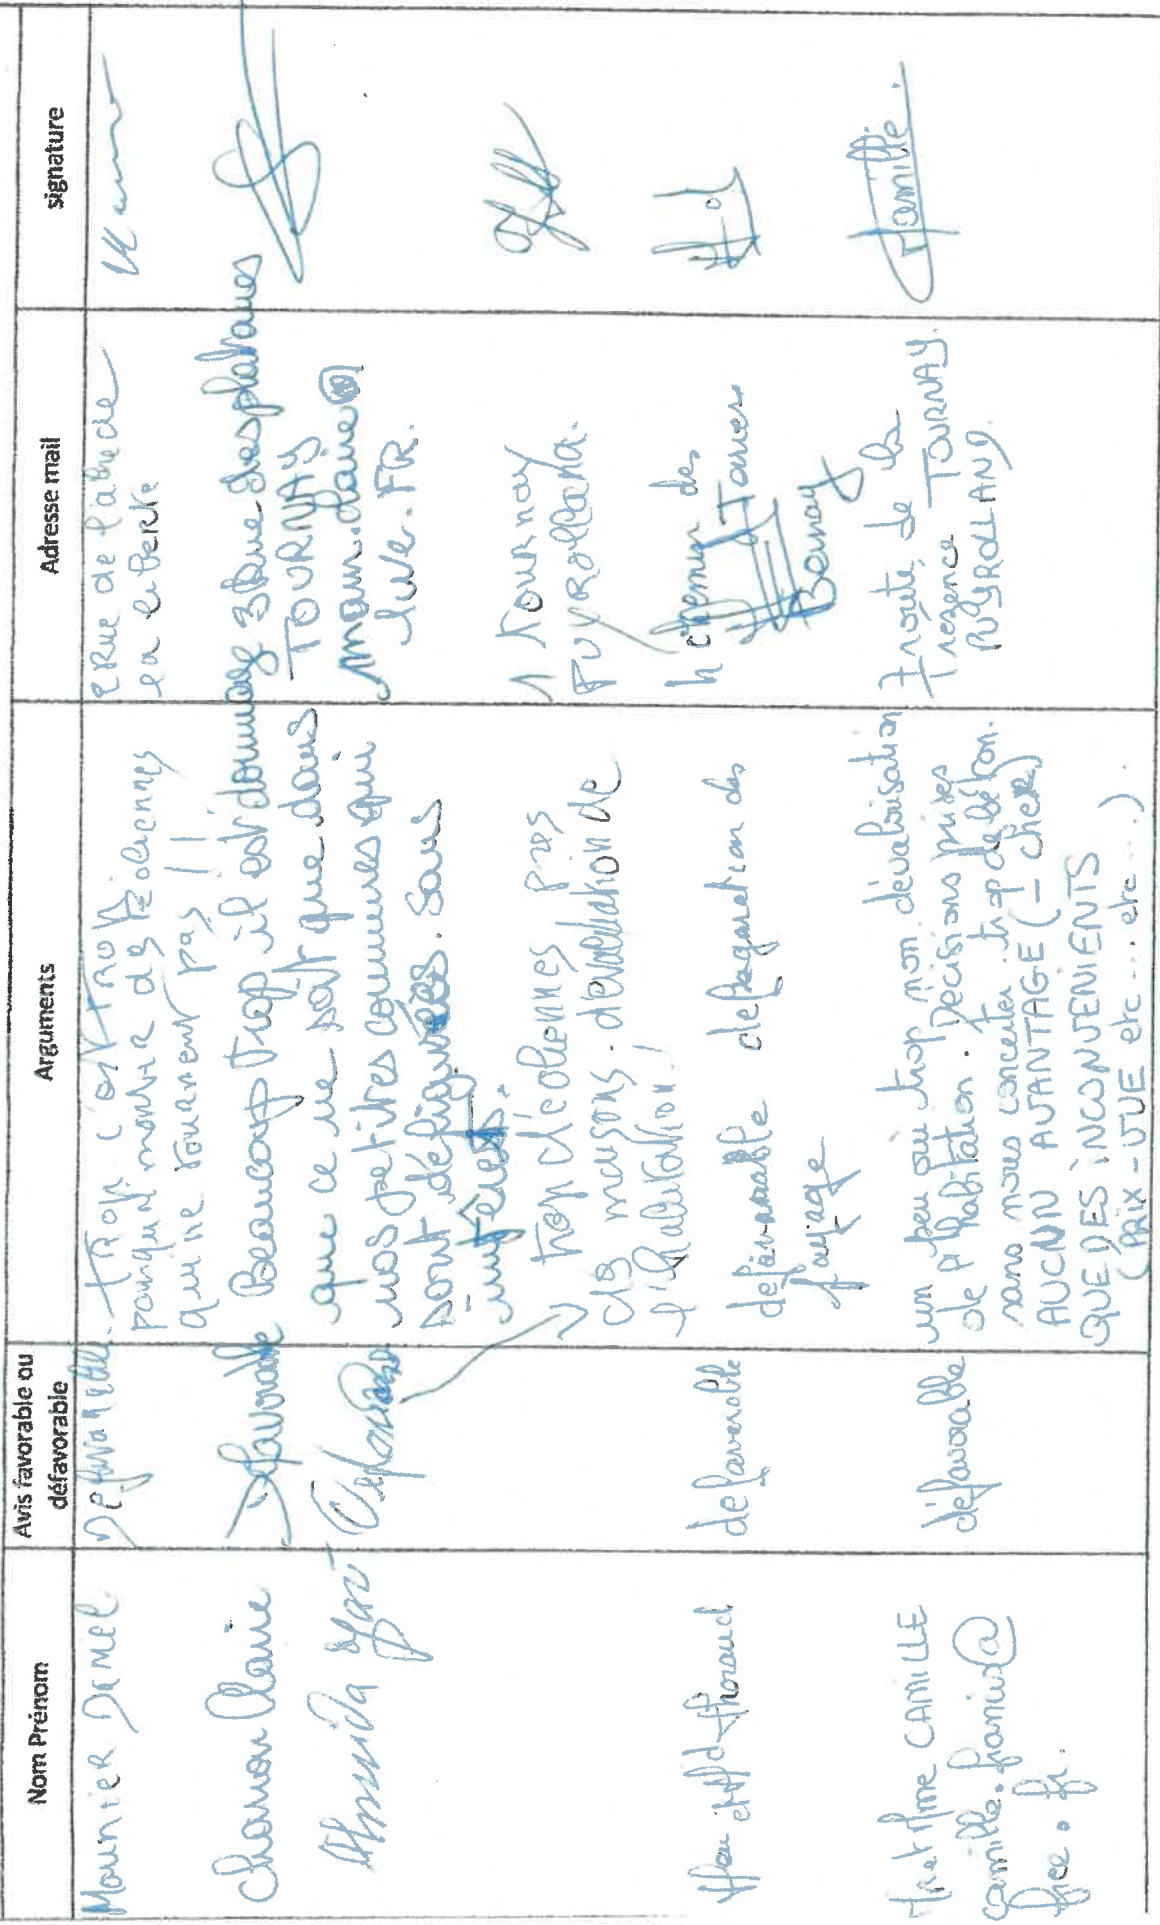 Nom Prénom
Avis favorable ou
défavorable
Arguments
Adresse mail
signature
Mounier Daniel
Defavorable
trop c'est trop
pourquoi mettre des Eoliennes
qui ne tournent pas !!
2 Rue de l'abre de
la liberté
Chamon Claire
Défavorable
Beaucoup trop il est dommage
que ce ne soit que dans
nos petites communes qui
sont défigurées. Sans
intérêt.
3 Rue des platanes
TOURNAY
mam.claire@
live.FR.
Almeida
trop d'éoliennes près
des maisons. devaluation de
l'habitation!
1 Tournay
Puyrolland.
Mr et Md
defaverable
defavorable defiguration des
paysage
chemin des
Bernay
Mr et Mme CAMILLE
camille.francis@
free.fr.
défavorable
un peu ou trop non. dévalorisation
de l'habitation. Décisions prises
sans nous concerter trop de béton.
AUCUN AVANTAGE (- cher)
QUE DES INCONVENIENTS
(PRIX-VUE etc...etc...)
7 route de la
Trezence TOURNAY
PUYROLLAND.
Camille.